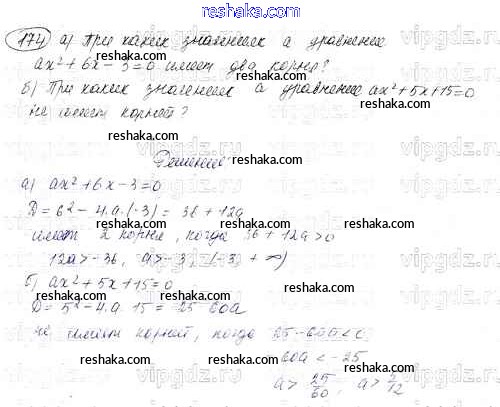 reshaka.com
174 а) При каких значениях а уравнение
ax² + 6x - 3 = 0 имеет два корня?
reshaka.com reshaka.com
б) При каких значениях а уравнение ax² + 5x + 15 = 0
не имеет корней?
reshaka.com reshaka.com
Решение
reshaka.com
а) ax² + 6x - 3 = 0
reshaka.com reshaka.com
D = 6² - 4·a·(-3) = 36 + 12a
имеет 2 корня, когда 36 + 12a > 0
reshaka.com reshaka.com
12a > -36, a > -3 (-3; +∞)
б) ax² + 5x + 15 = 0
reshaka.com reshaka.com
D = 5² - 4·a·15 = 25 - 60a
не имеет корней, когда 25 - 60a < 0
reshaka.com reshaka.com
-60a < -25
reshaka.com reshaka.com
a > 25/60, a > 5/12
reshaka.com